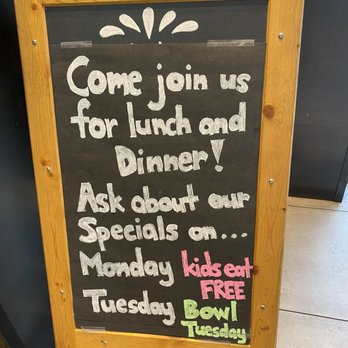 Come join us
for lunch and
Dinner!
Ask about our
Specials on...
Monday kids eat
FREE
Tuesday Bowl
Tuesday